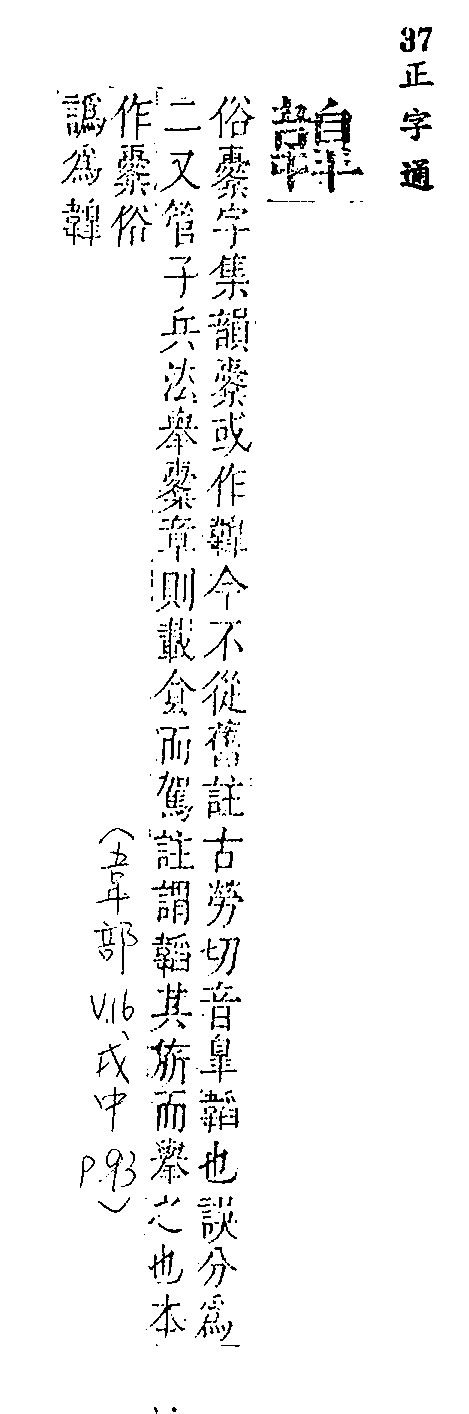 37 正字通
韟
俗櫜字集韻櫜或作韟今不從舊註古勞切音臯韜也誤分爲
二又管子兵法舉櫜章則載食而駕註謂韜其旂而舉之也本
作櫜俗
譌爲韟
(韋部 V.16、戌中 P.93)